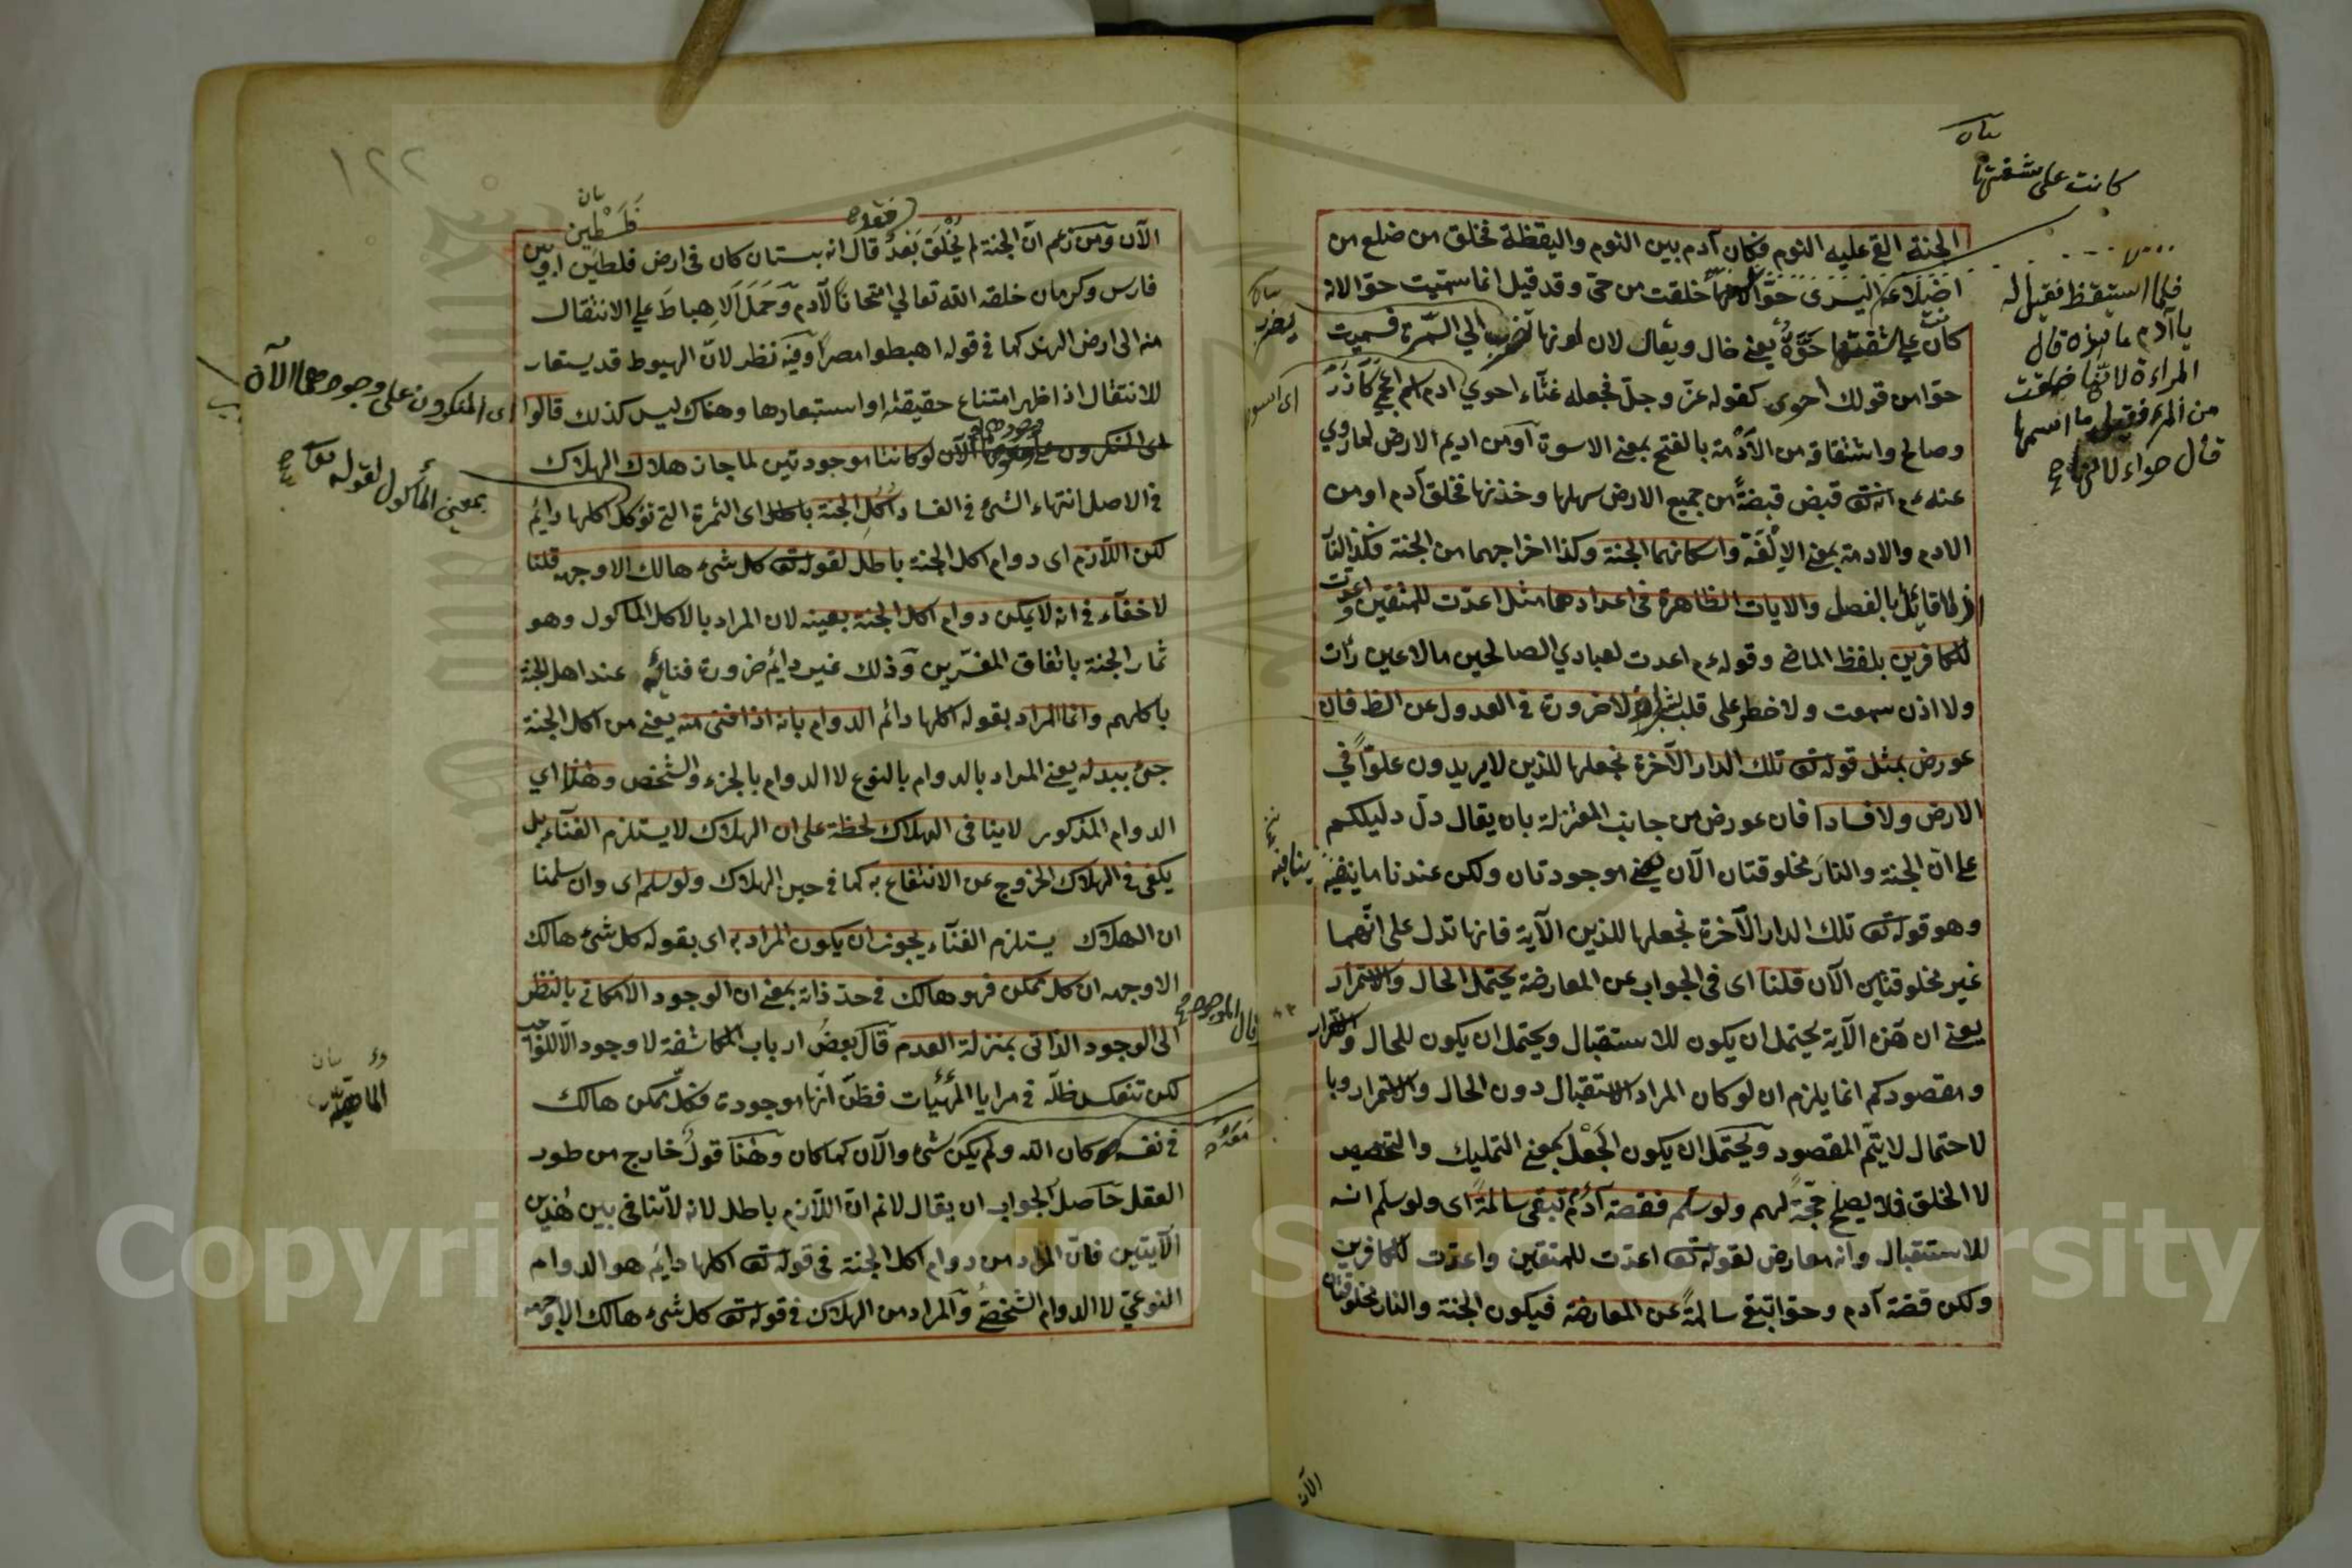 كانت على شفتها
الجنة القى عليه النوم فكان آدم بين النوم واليقظة فخلق من ضلع من
اضلاعه اليسرى حوّا خلقت من حىّ وقد قيل انما سميت حوّا لانه
كان على شفتها حُوَّةٌ يعنى خال ويقال لان لونها تضرب الي السمرة فسميت
حوّا من قولك احوى كقوله عزّ وجلّ فجعله غثآء احوي آدم اسم اعجمي كآذَرَ
وصالح واشتقاقه من الأدْمة بالفتح بمعنى الاسوة آومن اديم الارض لما روي
عنه عم انه تع قبض قبضةً من جميع الارض سهلها وحَزْنها فخلق آدم او من
الادم والادمة بمعنى الالْفَة واسكانهما الجنة وكذا اخراجهما من الجنة فكذا النار
اذ لا قائل بالفصل والايات الظاهرة فى اعدادهما مثل اعدّت للمتقين و اعدت
للكافرين بلفظ الماضى وقوله عم اعدت لعبادي الصالحين مالا عين رأت
ولا اذن سمعت ولا خطر على قلب بشر اذ لا ضرورة فى العدول عن الظ فان
عورض بمثل قوله تع تلك الدار الآخرة نجعلها للذين لا يريدون علوّاً في
الارض ولا فسادا فان عورض من جانب المعتزلة بان يقال دلّ دليلكم
على انّ الجنة والنار مخلوقتان الآن يعنى موجودتان ولكن عندنا ما ينفيه
وهو قوله تع تلك الدار الآخرة نجعلها للذين الآية فانها تدل على انّهما
غير مخلوقتين الآن قلنا اى فى الجواب عن المعارضة يحتمل الحال والاستمرار
يعنى ان هذه الآية يحتمل ان يكون للاستقبال ويحتمل ان يكون للحال والاستمرار
ومقصودكم انما يلزم ان لو كان المراد الاستقبال دون الحال والاستمرار وبا
لاحتمال لا يتمّ المقصود ويحتمل ان يكون الجَعْل بمعنى التمليك والتخصيص
لا الخلق فلا يصلح حجّةً لهم ولو سلم فقصة آدم تبقى سالمةً اى ولو سلم انه
للاستقبال وانه معارض لقوله تع اعدّت للمتقين واعدّت للكافرين
ولكن قصة آدم وحوّا تبقى سالمةً عن المعارضة فيكون الجنة والنار مخلوقتان
الآن
فلما استيقظ فقيل له
يا آدم ما هذه قال
المراءة لانّها خلقت
من المرء فقيل ما اسمها
قال حواء
اى اسود
ينافيه
١٢٢
فلَسْطين
الآن ومن زعم انّ الجنة لم يُخْلَق بَعْدُ قال انه بستان كان فى ارض فلطين او بين
فارس وكرمان خلقه الله تعالي امتحاناً لآدم وحَمَلَ الاِهباطَ على الانتقال
منه الى ارض الهند كما فى قوله اهبطوا مصراً وفيه نظر لانّ الهبوط قد يستعار
للانتقال اذا ظهر امتناع حقيقته او استبعادها وهناك ليس كذلك قالوا
اى المنكرون الآن لو كانتا موجودتين لما جاز هلاك الهلاك
فى الاصل انتهاء الشئ فى الفساد اُكُل الجنة باطل اى الثمرة التى تؤكل اكلها دائم
لكن اللازم اى دوام اكل الجنة باطل لقوله تع كل شئ هالك الا وجهه قلنا
لا خفآء فى انه لا يمكن دوام اكل الجنة بعينه لان المراد بالاكل الماكول وهو
ثمار الجنة باتفاق المفسّرين وذلك غير دائم ضرورة فنائه عند اهل الجنة
باكلهم وانما المراد بقوله اكلها دائم الدوام بانه اذا فنى منه يعنى من اكل الجنة
جئ ببدله يعنى المراد بالدوام بالنوع لا الدوام بالجزء والشخص وهذا اي
الدوام المذكور لا ينافى الهلاك لحظة على ان الهلاك لا يستلزم الفنآء بل
يكفى فى الهلاك الخروج عن الانتفاع به كما فى حين الهلاك ولو سلم اى وان سلمنا
ان الهلاك يستلزم الفنآء يجوز ان يكون المراد به اى بقوله كل شئ هالك
الا وجهه ان كل ممكن فهو هالك فى حدّ ذاته بمعنى ان الوجود الامكانى بالنظر
الى الوجود الذاتى بمنزلة العدم قال بعضُ ارباب المكاشفة لا وجود الّا للواجب
لكن تنعكس ظلّه فى مرايا المهئيات فظنّ انّها موجودة فكلّ ممكن هالك
فى نفسه كان الله ولم يكن شئ والآن كما كان وهذا قولٌ خارج من طور
العقل حاصل الجواب ان يقال لانم انّ اللازم باطل لانه لا تنافى بين هذين
الآيتين فانّ المراد من دوام اكل الجنة فى قوله تع اكلها دائم هو الدوام
النوعىّ لا الدوام الشخصىّ والمراد من الهلاك فى قوله تع كل شئ هالك الا وجهه
اى المنكرون على وجودهما الآن
بمعنى المأكول لقوله تعا
الماهية
Copyright © King Saud University